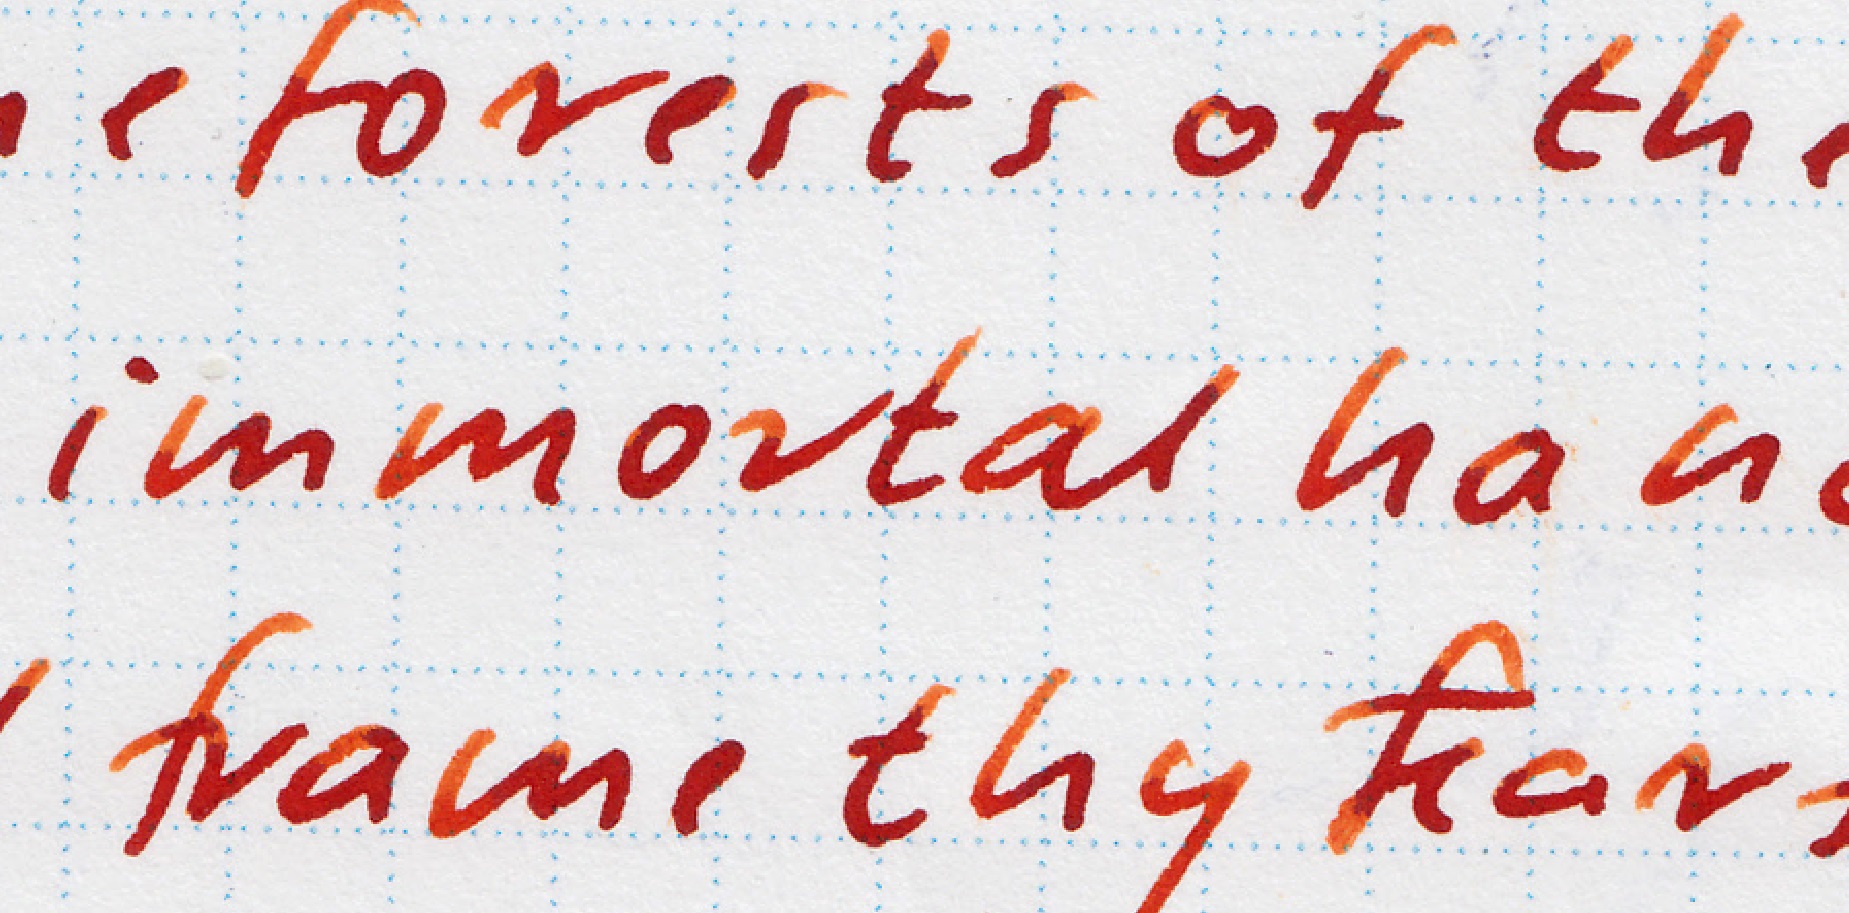 e forests of the
immortal han
frame thy fear